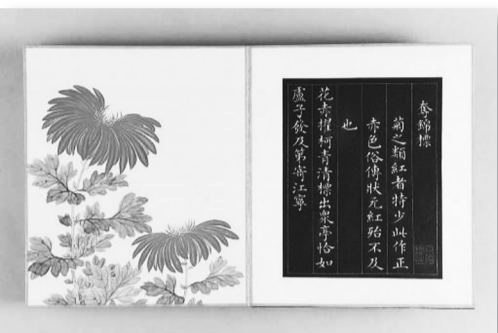 奪錦標
菊之類紅者特少此作正
赤色俗傳狀元紅殆不及
也
花赤擢柯青清標出衆亭恰如
盧子發及第寄江寧